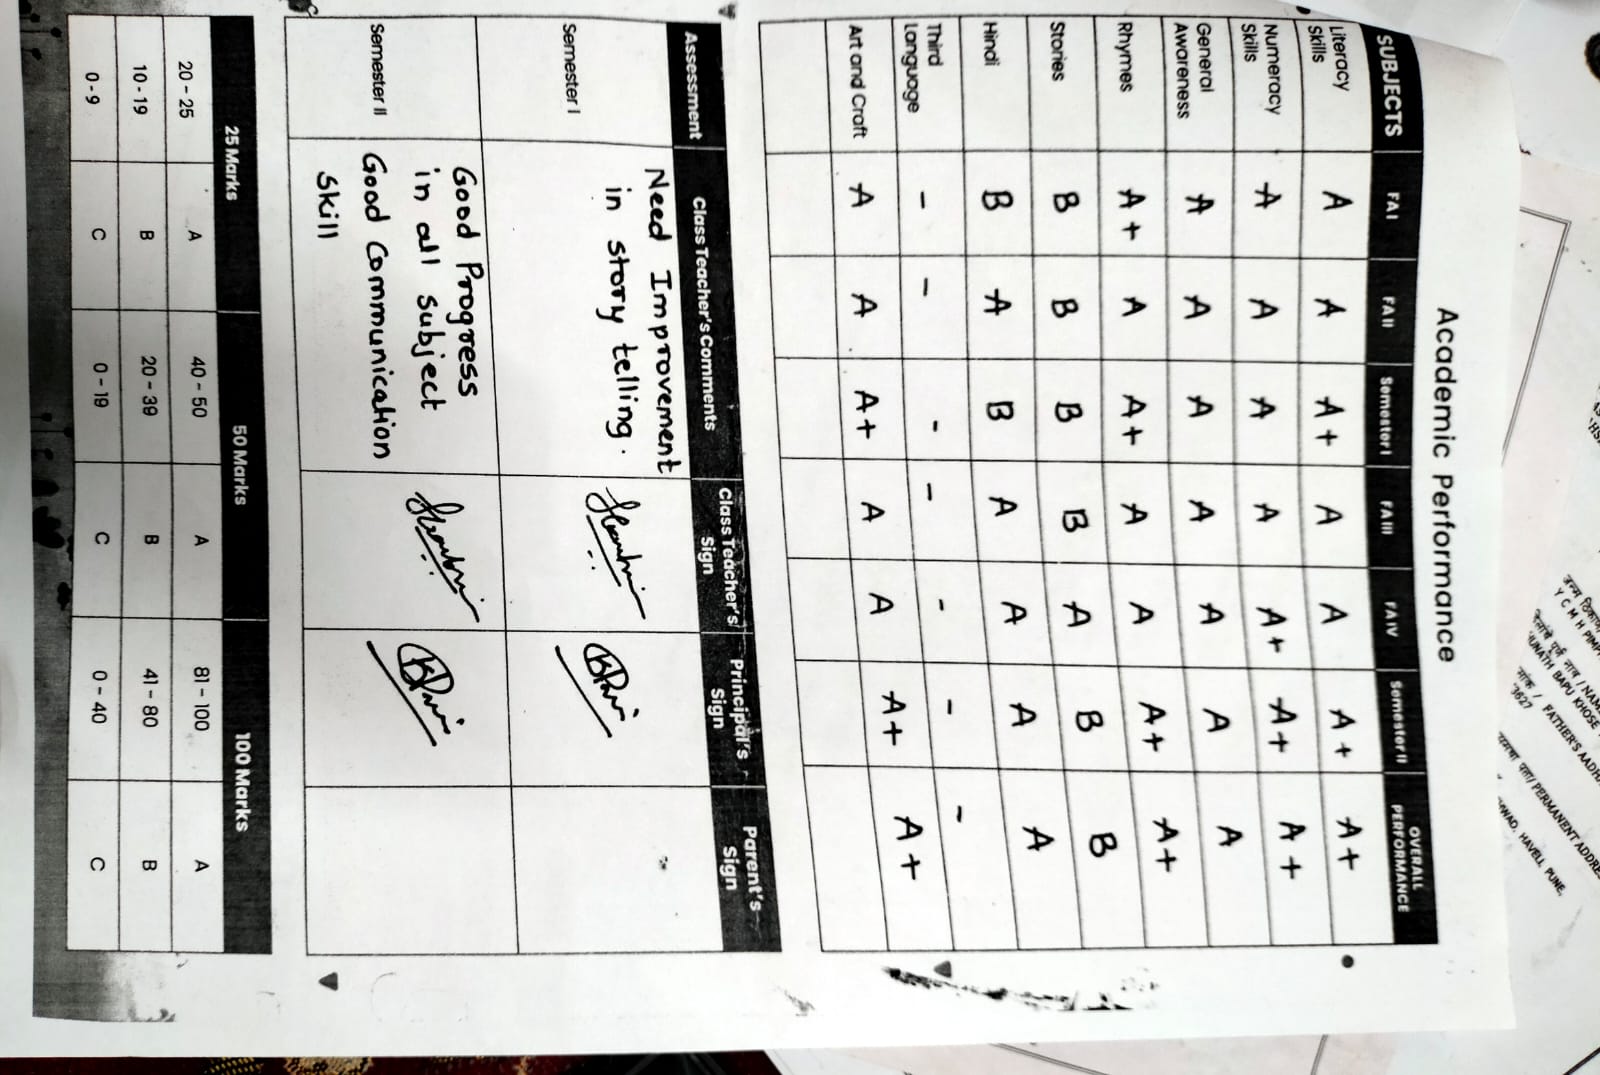 Academic Performance
SUBJECTS FA I FA II Semester I FA III FA IV Semester II OVERALL PERFORMANCE
Literacy Skills A A A+ A A A+ A+
Numeracy Skills A A A A A+ A+ A+
General Awareness A A A A A A A
Rhymes A+ A A+ A A A+ A+
Stories B B B B A B B
Hindi B A B A A A A
Third Language - - - - - - -
Art and Craft A A A+ A A A+ A+
Assessment Class Teacher's Comments Class Teacher's Sign Principal's Sign Parent's Sign
Semester I Need Improvement
in story telling.
Semester II Good Progress
in all subject
Good Communication
skill
25 Marks 50 Marks 100 Marks
20 - 25 A 40 - 50 A 81 - 100 A
10 - 19 B 20 - 39 B 41 - 80 B
0 - 9 C 0 - 19 C 0 - 40 C
Y C M H
BAPU KHOSE
3627
/ FATHER'S
/ PERMANENT
HAVELI, PUNE,